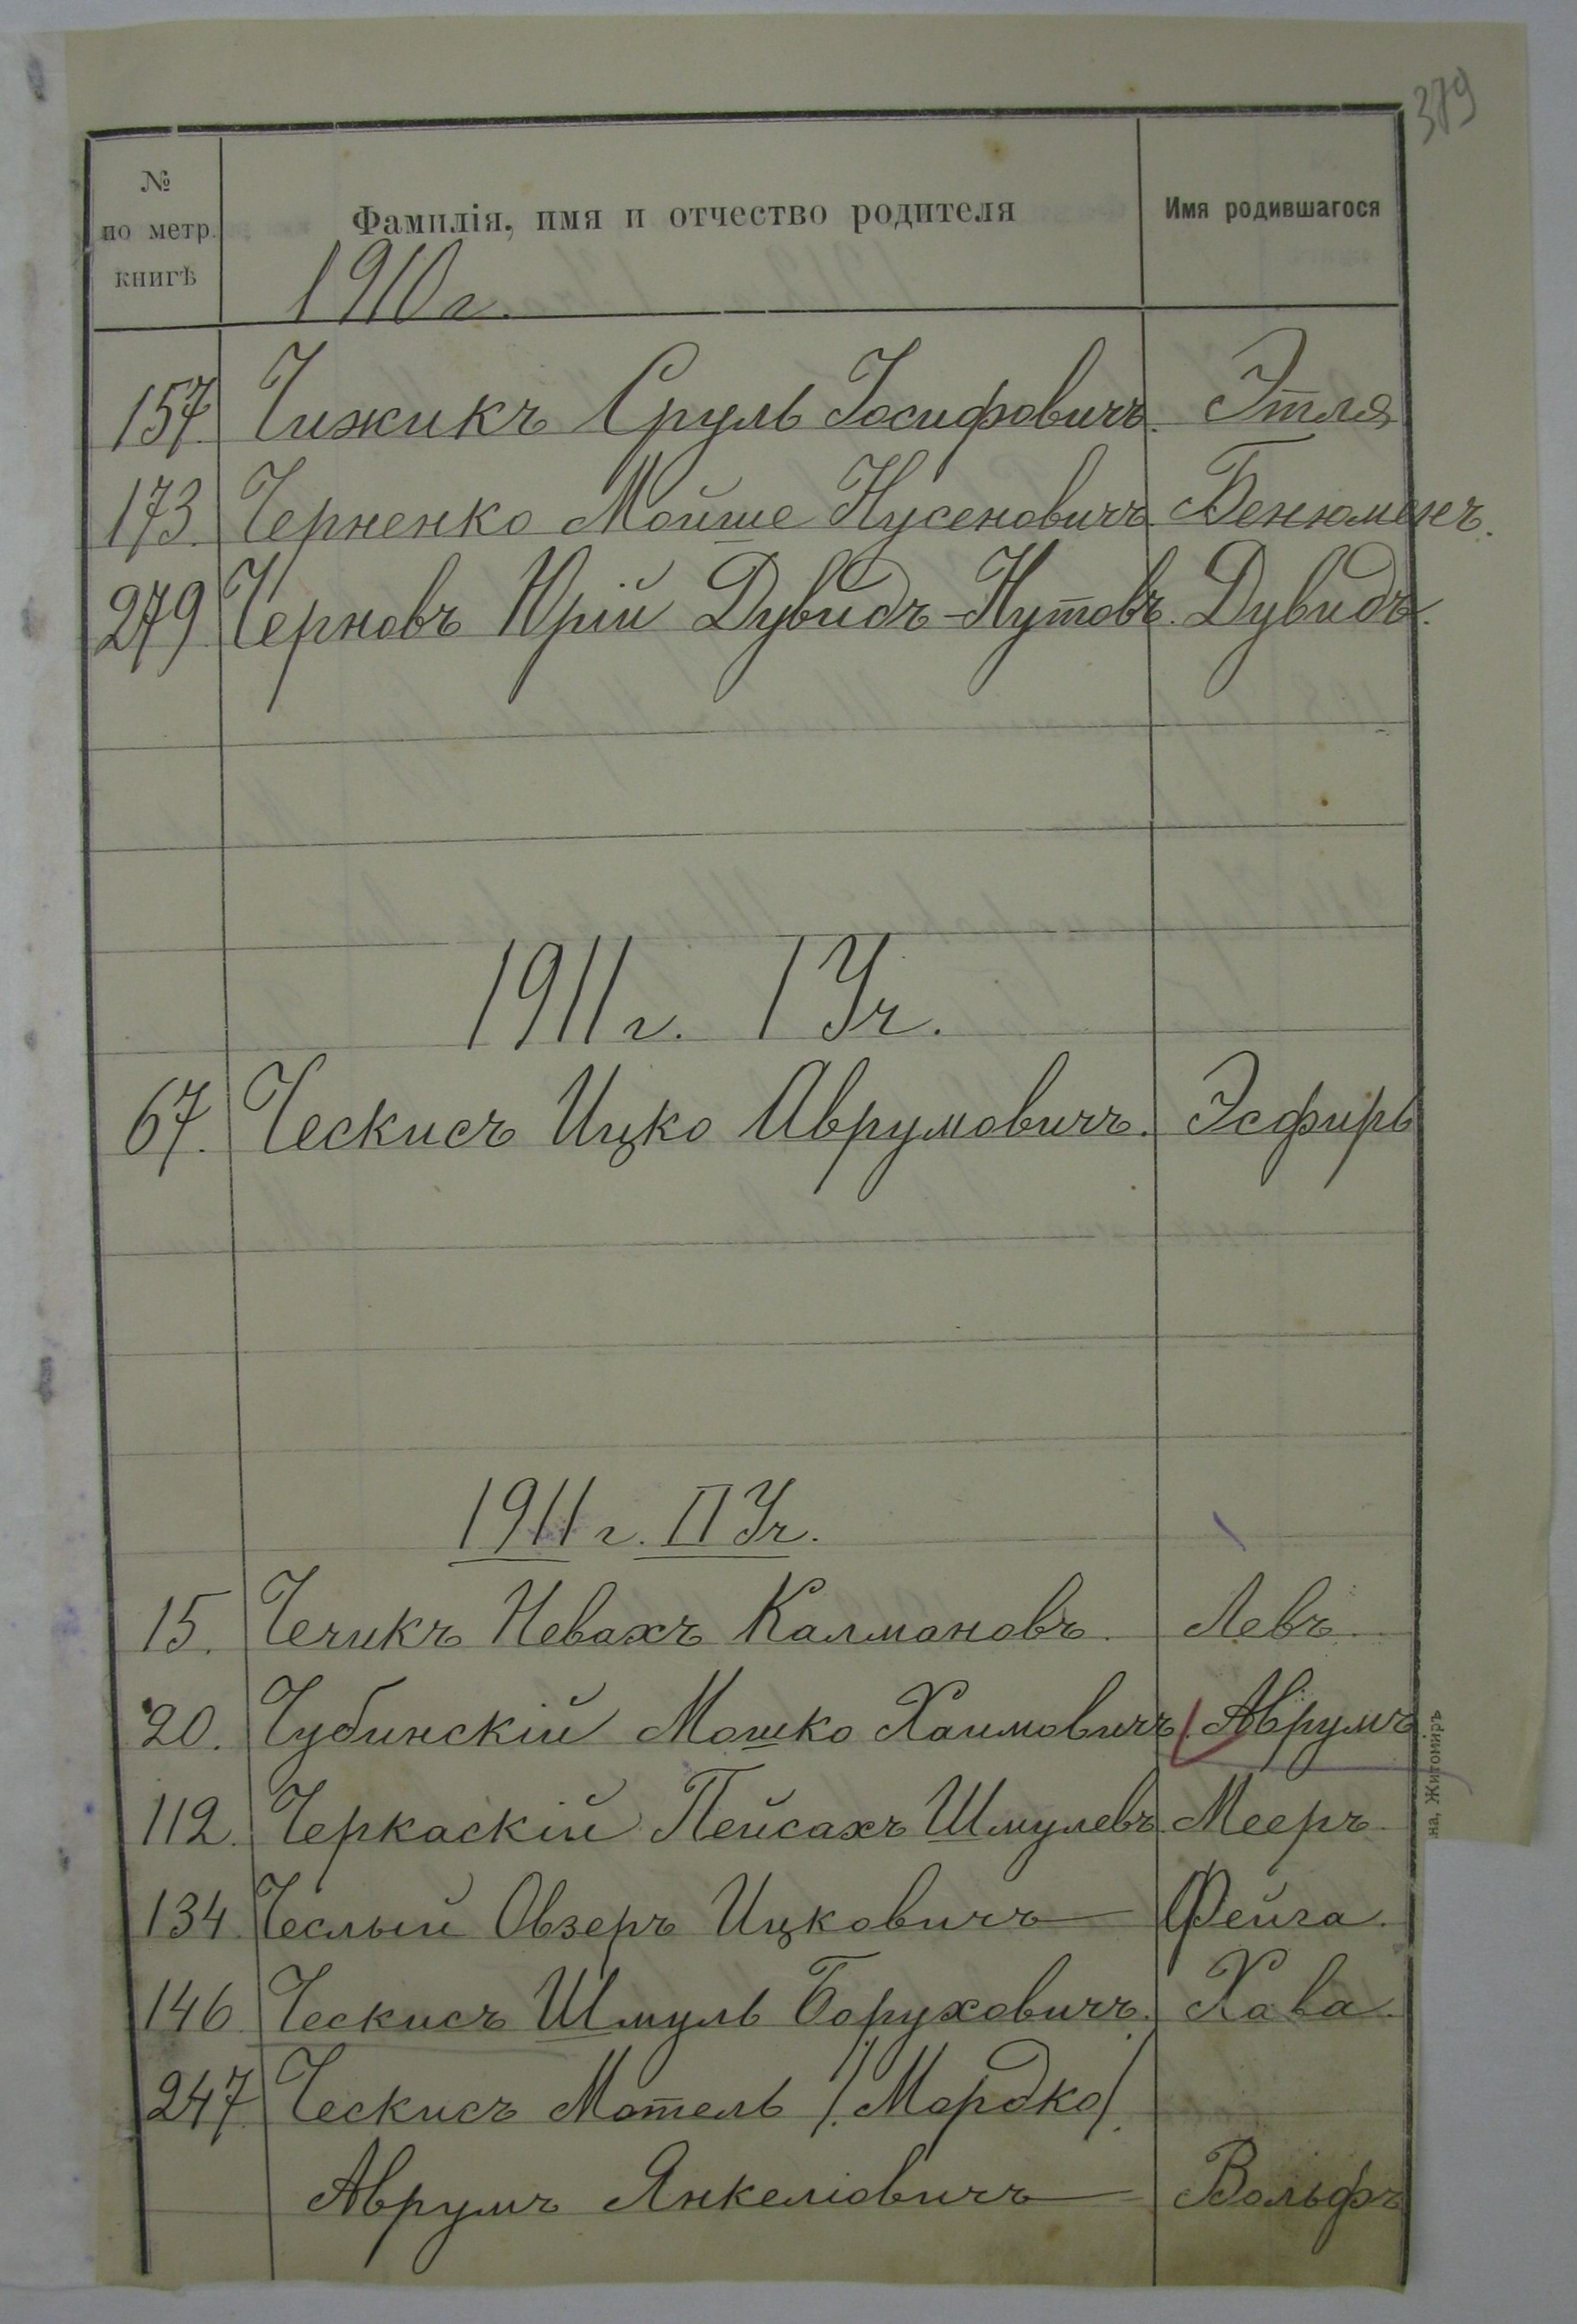 379
№ по метр. книгѣ Фамилія, имя и отчество родителя Имя родившагося
1910 г.
157 Чижикъ Сруль Іосифовичъ. Этля
173. Черненко Мойше Нусеновичъ. Бенюменъ.
279 Черновъ Юрій Дувидъ-Нутовъ. Дувидъ.
1911 г. I Уч.
67. Ческисъ Ицко Аврумовичъ. Эсфирь
1911 г. II Уч.
15. Чечикъ Невахъ Калмановъ. Левъ.
20. Чубинскій Мошко Хаимовичъ. Аврумъ
112. Черкаскій Пейсахъ Шмулевъ. Мееръ.
134 Чеслый Овзеръ Ицковичъ Фейга.
146 Ческисъ Шмуль Боруховичъ. Хава.
247 Ческисъ Мотель /Мордко/.
Аврумъ Янкеліовичъ Вольфъ
на, Житомиръ